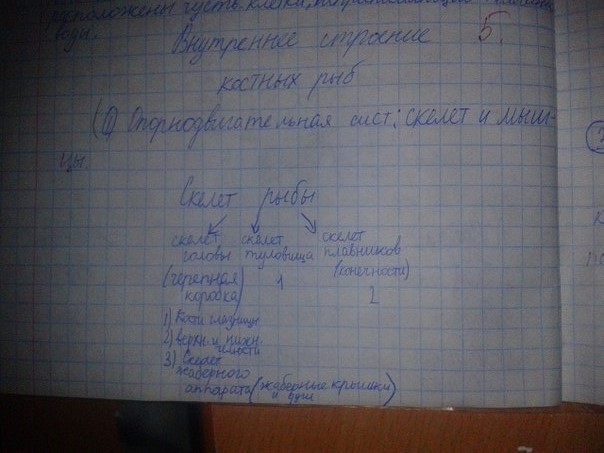 расположены густь клетки,
вода.
Внутреннее строение 5.
костных рыб
(1) Опорнодвигательная сист: скелет и мыш-
цы.
Скелет рыбы
скелет скелет скелет
головы туловища плавников
(конечности)
(черепная 1
коробка) 2
1) Кости глазницы
2) верхн. и нижн.
челюсти
3) Скелет
жаберного
аппарата (жаберные крышки
и дуги)